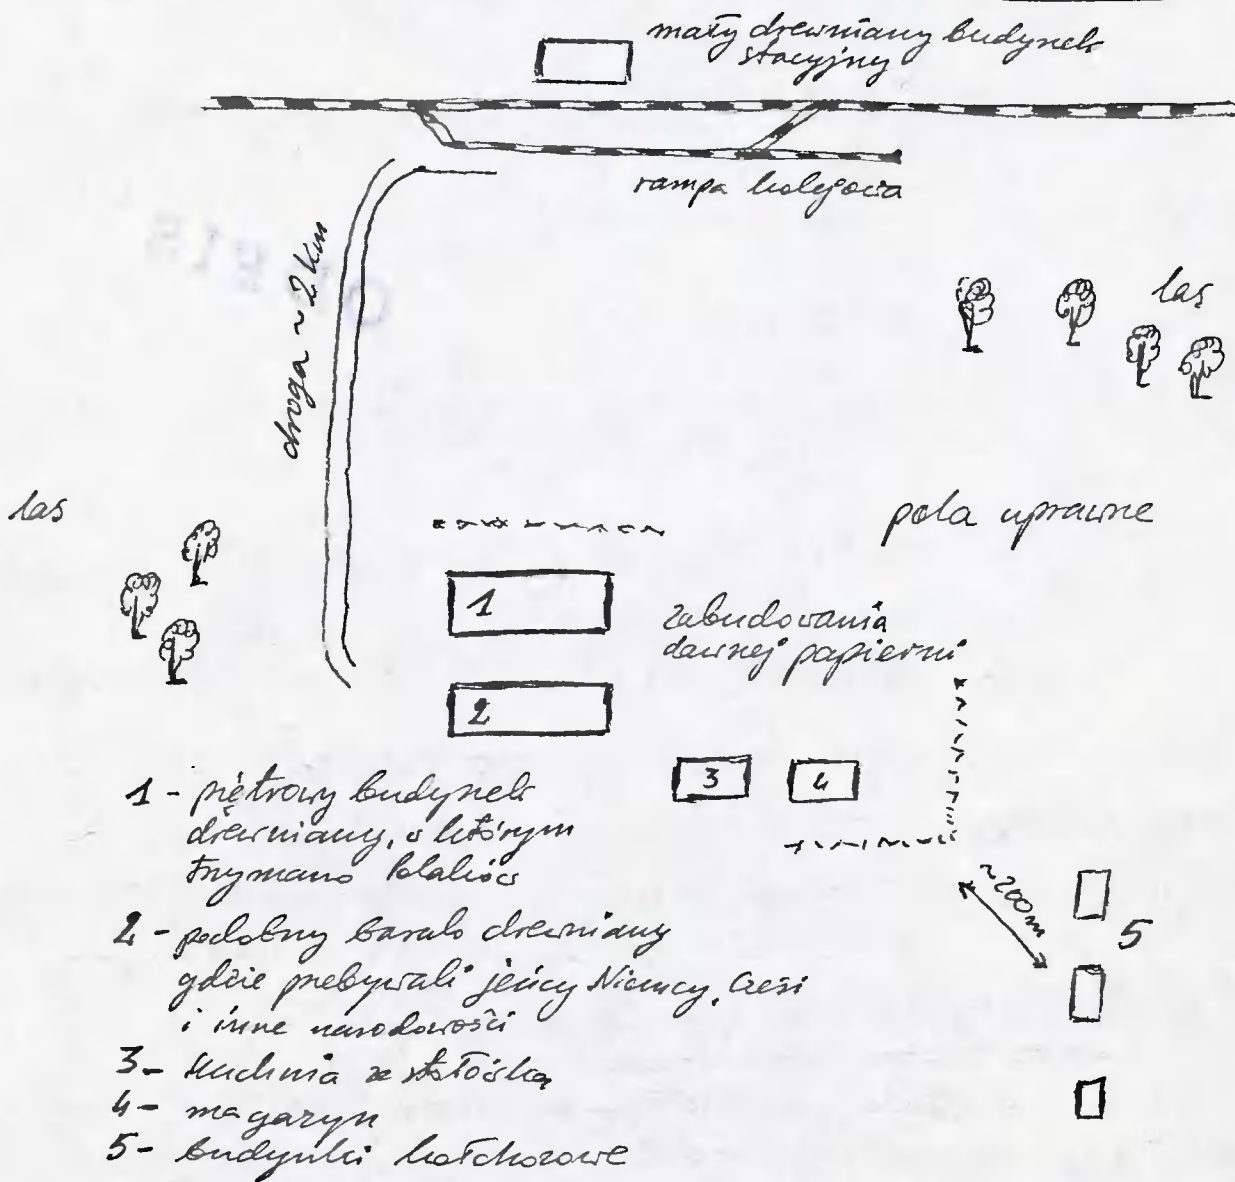 mały drewniany budynek
stacyjny
rampa kolejowa
droga ~ 2 km
las
las
pola uprawne
1
zabudowania
dawnej papierni
2
3
4
~200m
5
1 - piętrowy budynek
drewniany, w którym
trzymano Polaków
2 - podobny barak drewniany
gdzie przebywali jeńcy Niemcy, Czesi
i inne narodowości
3 - kuchnia ze stołówką
4 - magazyn
5 - budynki kołchozowe